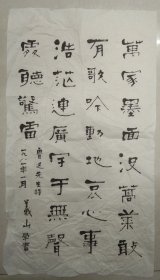 萬家墨面没蒿萊敢
有歌吟動地哀心事
浩茫連廣宇于無聲
處聽驚雷
魯迅先生詩
年一月
義山學書